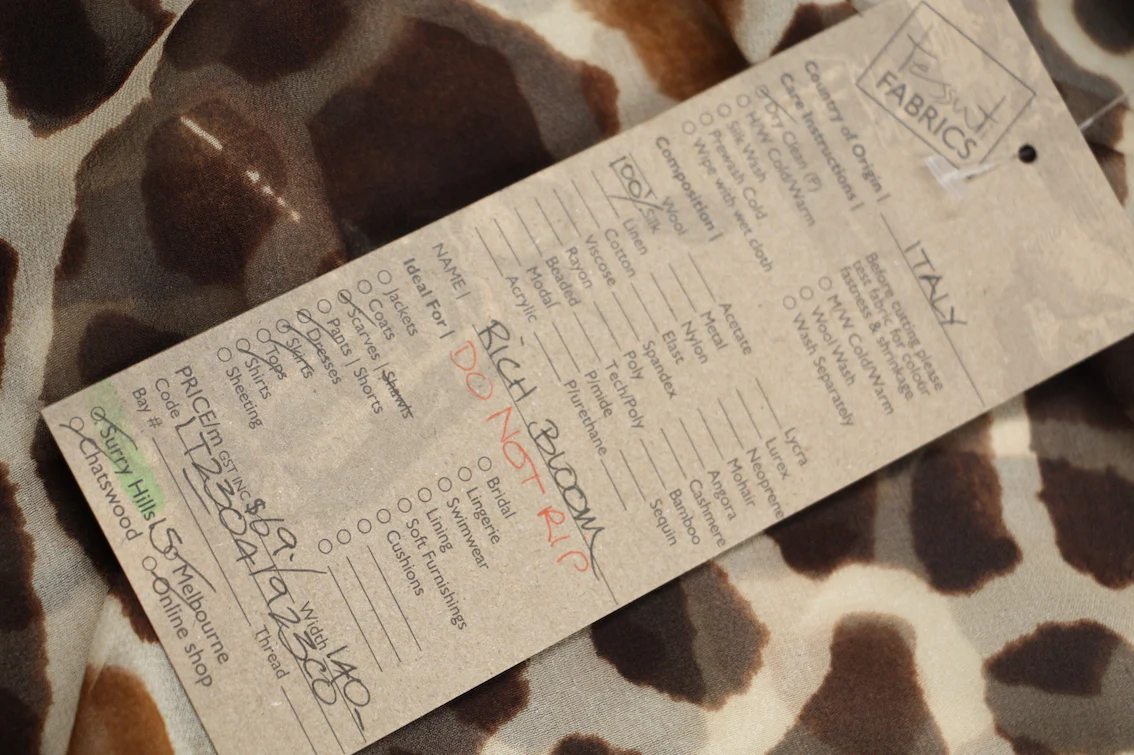 Tessuti
FABRICS
Country of Origin | ITALY
Care Instructions |
Dry Clean (P)
H/W Cold/Warm
Silk Wash
Prewash Cold
Wipe with wet cloth
Before cutting please
test fabric for colour
fastness & shrinkage.
M/W Cold/Warm
Wool Wash
Wash Separately
Composition |
Wool
100% Silk
Linen
Cotton
Viscose
Rayon
Beaded
Modal
Acrylic
Acetate
Metal
Nylon
Elast
Spandex
Poly
Tech/Poly
P/mide
P/urethane
Lycra
Lurex
Neoprene
Mohair
Angora
Cashmere
Bamboo
Sequin
NAME | RICH BLOOM
DO NOT RIP
Ideal For |
Jackets
Coats
Scarves | Shawls
Pants | Shorts
Dresses
Skirts
Tops
Shirts
Sheeting
Bridal
Lingerie
Swimwear
Lining
Soft Furnishings
Cushions
PRICE/m GST INC $69./ Width 140
Code LT2304/92300
Bay # Thread
Surry Hills Melbourne
Chatswood Online shop